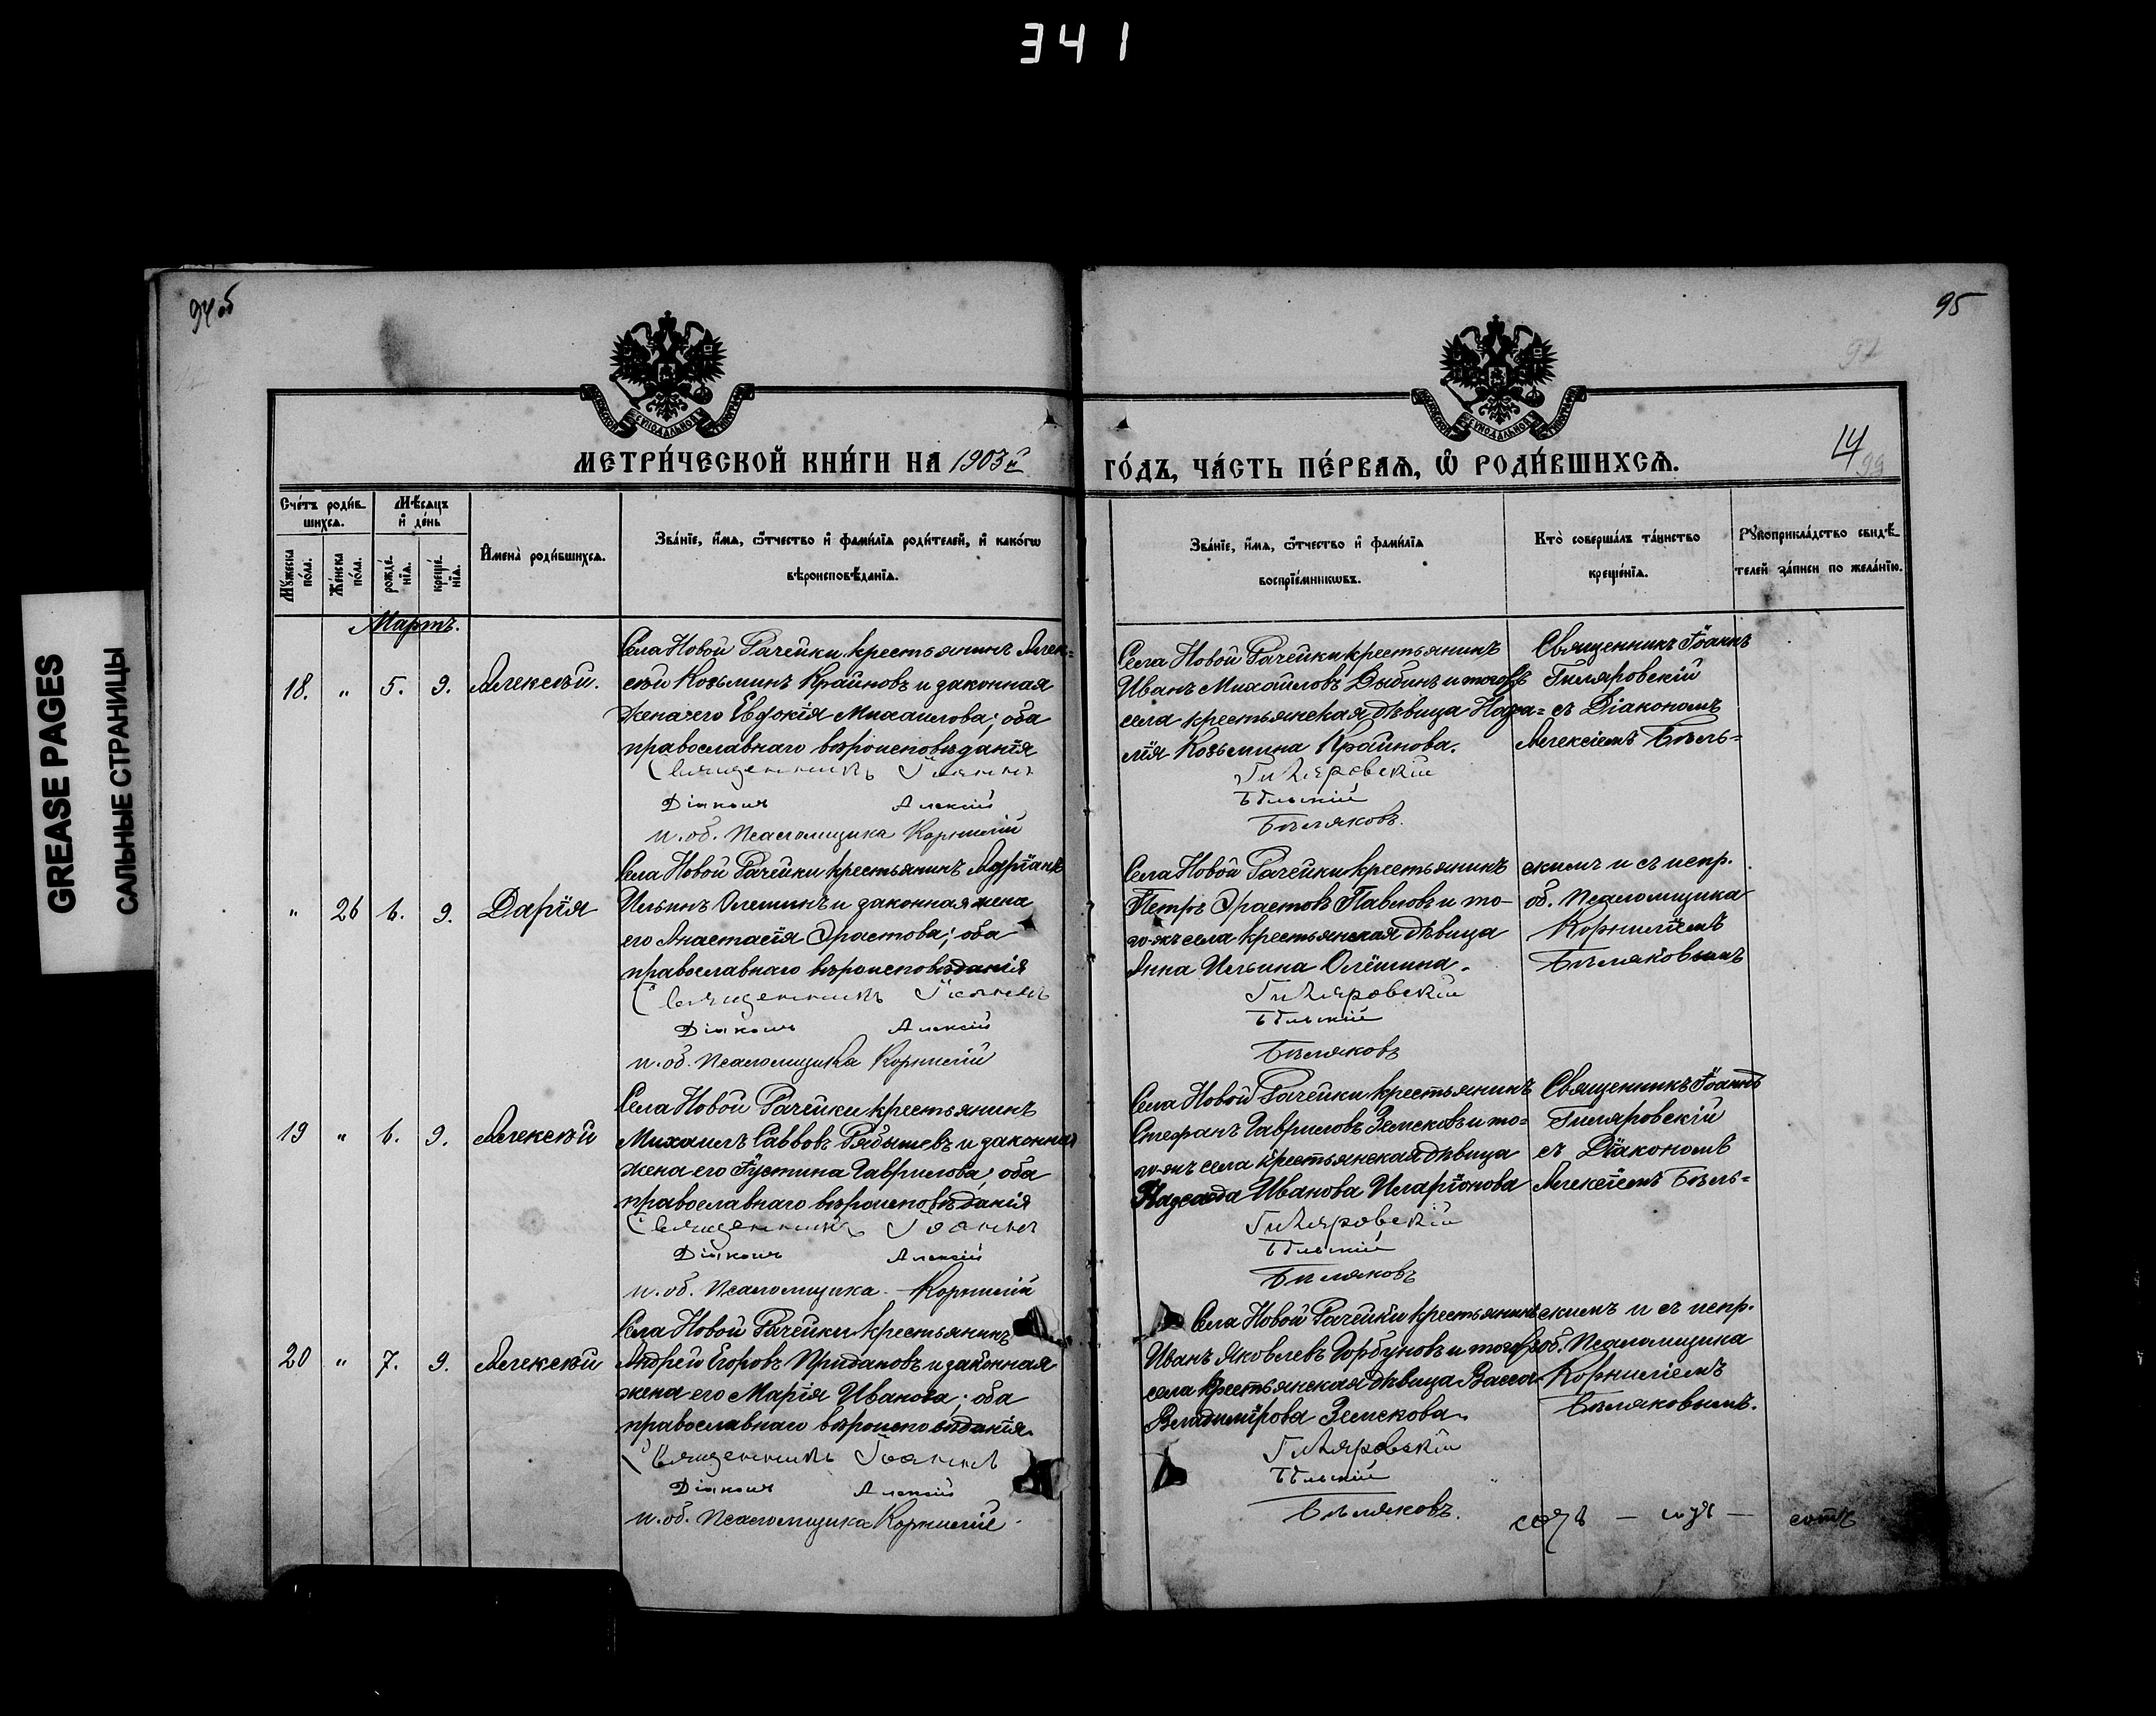 341
94 об
95
92
МЕТРИ́ЧЕСКОЙ КНИ́ГИ НА 1903 й
ГО́ДЪ, ЧА́СТЬ ПЕ́РВАѦ, Ѽ РОДИ́ВШИХСѦ.
14
99
Сче́тъ роди́в-
шихсѧ.
Мѣ́сѧцъ
и҆ де́нь
Мꙋ́жеска по́ла.
Же́нска по́ла.
рожде́-нїѧ.
креще́-нїѧ.
И҆мена̀ роди́вшихсѧ.
Зва́нїе, и҆́мѧ, ѻ҆́тчество и҆ фами́лїѧ роди́телей, и҆ како́гѡ
вѣроисповѣ́данїѧ.
Зва́нїе, и҆́мѧ, ѻ҆́тчество и҆ фами́лїѧ
воспрїе́мникѡвъ.
Кто̀ соверша́лъ та́инство
креще́нїѧ.
Рꙋкоприкла́дство свидѣ́-
телей за́писи по жела́нїю.
GREASE PAGES
САЛЬНЫЕ СТРАНИЦЫ
Мартъ.
18. " 5. 9. Алексѣй.
Села Новой Рачейки крестьянинъ Алек=
сѣй Козьминъ Крайновъ и законная
жена его Евдокія Михаилова; оба
православнаго вѣроисповѣданія
Священникъ Іоаннъ
Діаконъ Алексій
и. об. Псаломщика Корнилій
Села Новой Рачейки крестьянинъ
Иванъ Михаиловъ Дыбинъ и того-жъ
села крестьянская дѣвица Ната=
лія Козьмина Крайнова.
Гиляровскій
Бѣльскій
Бѣляковъ.
Священникъ Іоаннъ
Гиляровскій
съ Діакономъ
Алексіемъ Бѣль=
" 26 6. 9. Дарія
Села Новой Рачейки крестьянинъ Адріанъ
Ильинъ Олешинъ и законная жена
его Анастасія Эрастова; оба
православнаго вѣроисповѣданія
Священникъ Іоаннъ
Діаконъ Алексій
и. об. Псаломщика Корнилій
Села Новой Рачейки крестьянинъ
Петръ Эрастовъ Павловъ и то-
го-жъ села крестьянская дѣвица
Анна Ильина Олешина.
Гиляровскій
Бѣльскій
Бѣляковъ
скимъ и съ испр.
об. Псаломщика
Корниліемъ
Бѣляковымъ
19 " 6. 9. Алексѣй
Села Новой Рачейки крестьянинъ
Михаилъ Саввовъ Рябышевъ и законная
жена его Іустина Гаврилова; оба
православнаго вѣроисповѣданія
Священникъ Іоаннъ
Діаконъ Алексій
и. об. Псаломщика Корнилій
Села Новой Рачейки крестьянинъ
Стефанъ Гавриловъ Земсковъ и то=
го-жъ села крестьянская дѣвица
Надежда Иванова Иларіонова
Гиляровскій
Бѣльскій
Бѣляковъ
Священникъ Іоаннъ
Гиляровскій
съ Діакономъ
Алексіемъ Бѣль=
20 " 7. 9. Алексѣй
Села Новой Рачейки крестьянинъ
Андрей Егоровъ Придановъ и законная
жена его Марія Иванова; оба
православнаго вѣроисповѣданія.
Священникъ Іоаннъ
Діаконъ Алексій
и. об. Псаломщика Корнилій
Села Новой Рачейки крестьянинъ
Иванъ Яковлевъ Горбуновъ и того-жъ
села крестьянская дѣвица Васса
Владимірова Земскова.
Гиляровскій
Бѣльскій
Бѣляковъ.
скимъ и съ испр.
об. Псаломщика
Корниліемъ
Бѣляковымъ.